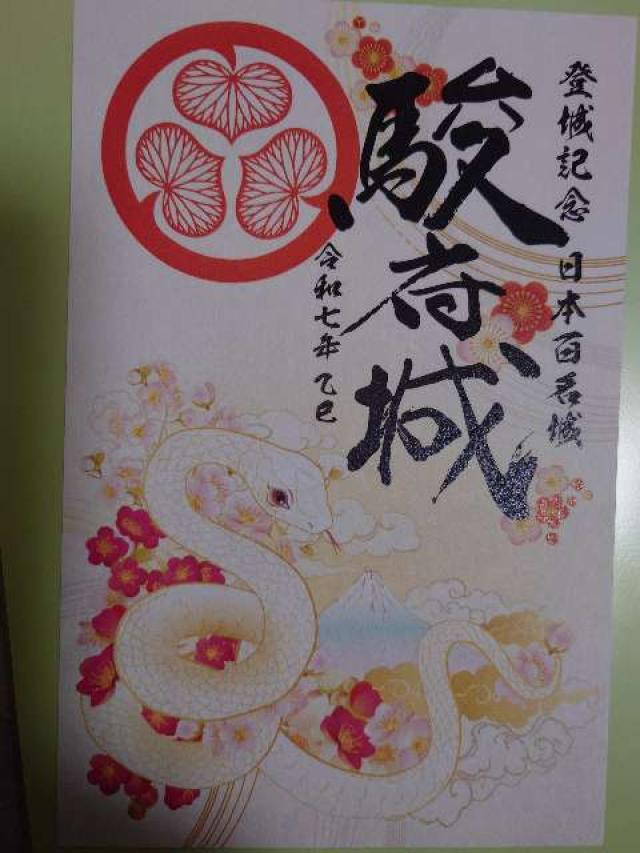 登城記念 日本百名城
駿府城
令和七年 乙巳